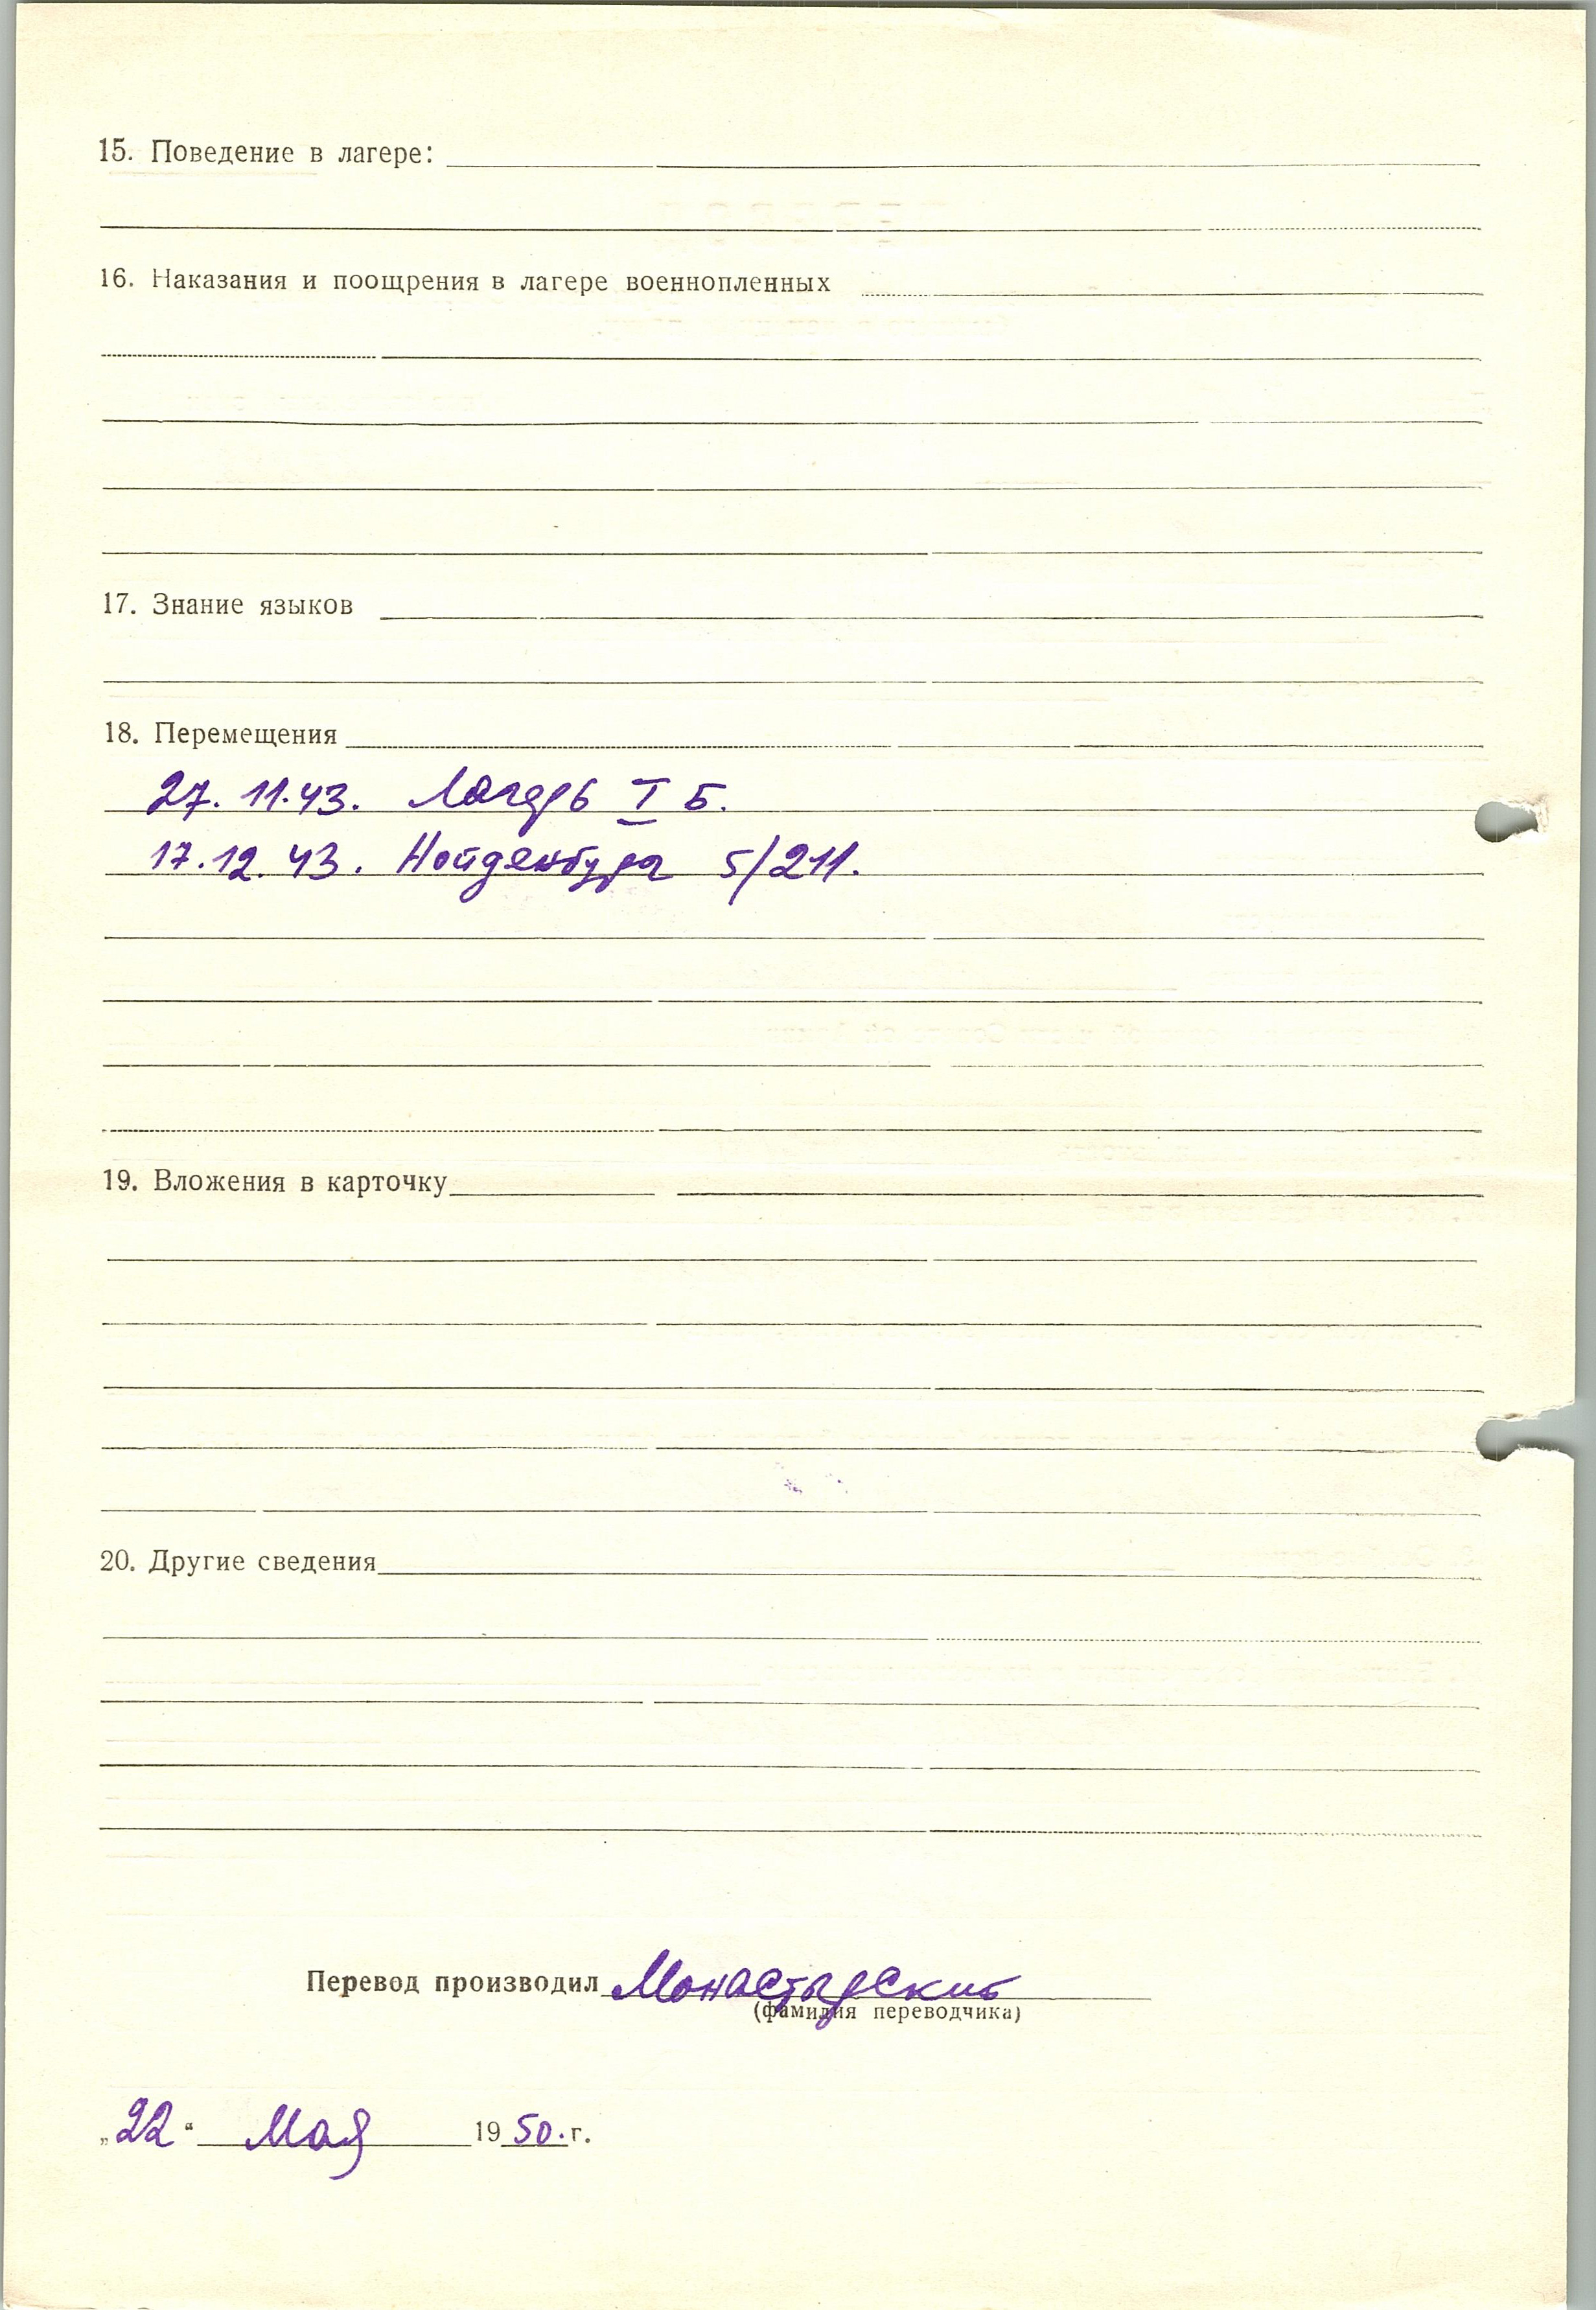 15. Поведение в лагере:
16. Наказания и поощрения в лагере военнопленных
17. Знание языков
18. Перемещения
27. 11.43. Лагерь I Б.
17.12.43. Нойденбург 5/211.
19. Вложения в карточку
20. Другие сведения
Перевод производил Монастырский
(фамилия переводчика)
„22“ Мая 1950.г.